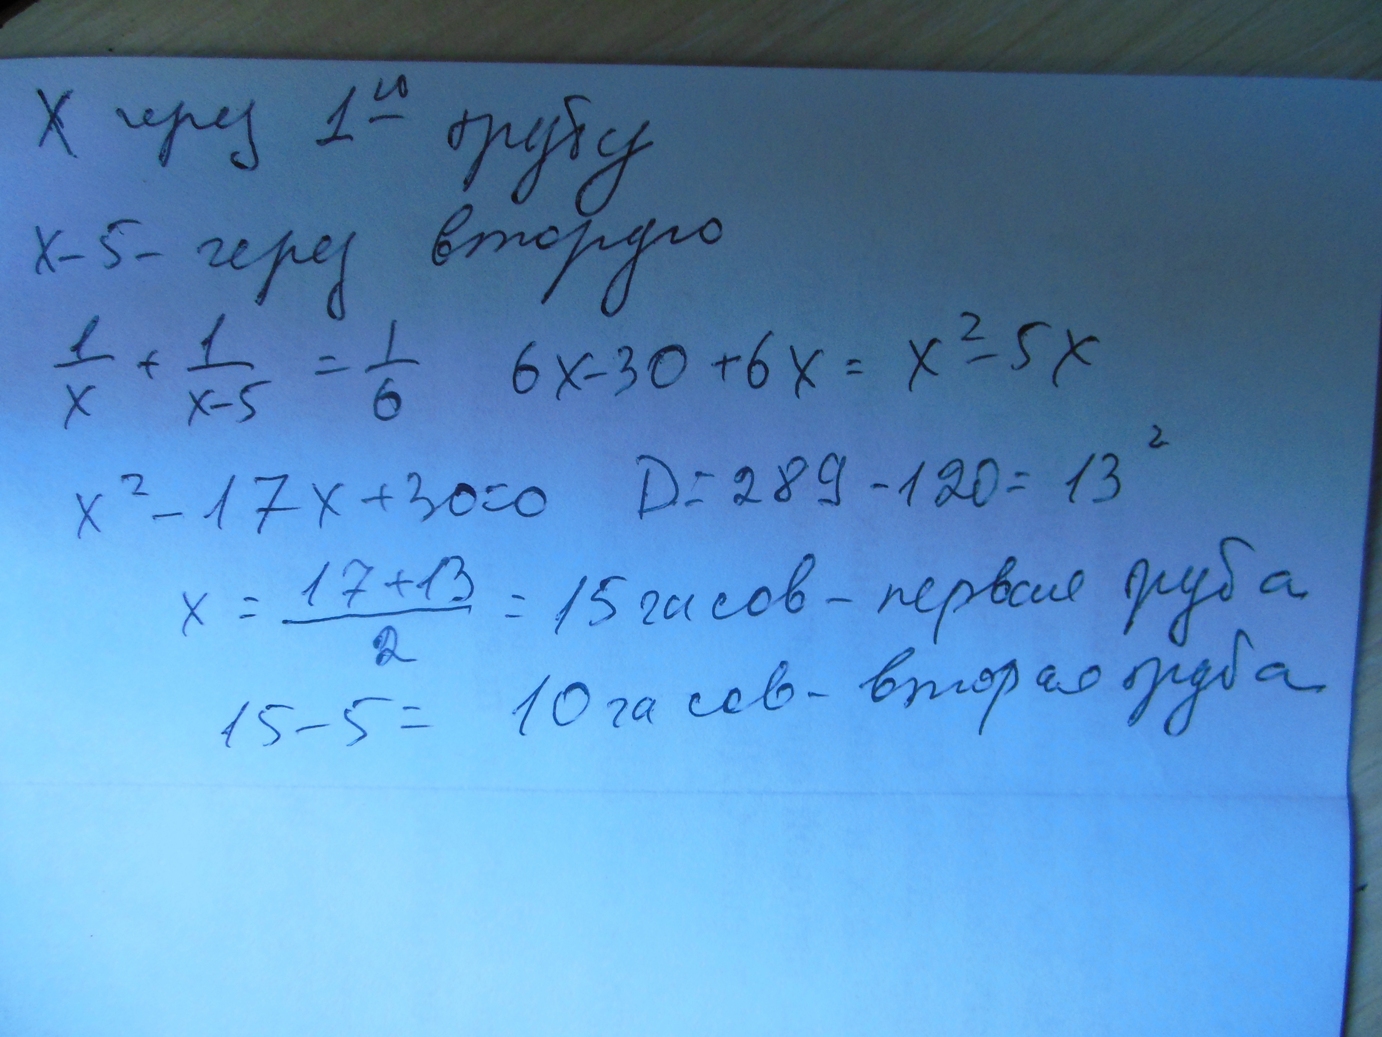 X через 1ую трубу
x-5- через вторую
1/x + 1/(x-5) = 1/6 6x-30+6x = x²-5x
x²-17x+30=0 D=289-120=13²
x = (17+13)/2 = 15 часов - первая труба
15-5= 10 часов - вторая труба